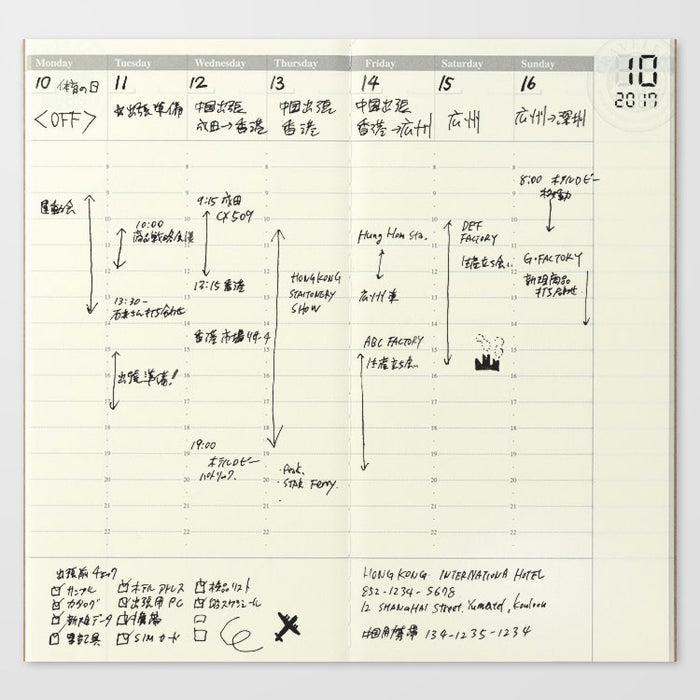 Monday
10 体育の日
<OFF>
運動会
Tuesday
11
出張準備
10:00
商品戦略会議
13:30-
石井さん打ち合わせ
出張準備!
Wednesday
12
中国出張
成田→香港
9:15 成田
CX509
13:15 香港
香港市場リサーチ
19:00
ホテルロビー
パトリック
Thursday
13
中国出張
香港
HONGKONG
STATIONERY
SHOW
・Peak.
・STAR Ferry.
Friday
14
中国出張
香港→広州
Hung Hom Sta.
広州東
ABC FACTORY
生産立ち会い
Saturday
15
広州
DEF
FACTORY
生産立ち会い
Sunday
16
広州→深圳
8:00 ホテルロビー
移動
G・FACTORY
新規商品
打ち合わせ
10
2017
出張前チェック
サンプル
カタログ
新規データ
筆記具
ホテルアドレス
出張用PC
携帯
SIMカード
検品リスト
スケジュール
HONGKONG INTERNATIONA HOTEL
852-1234-5678
12 SHANGHAI Street. Yumatei, Kouloon
中国用携帯 134-1235-1234